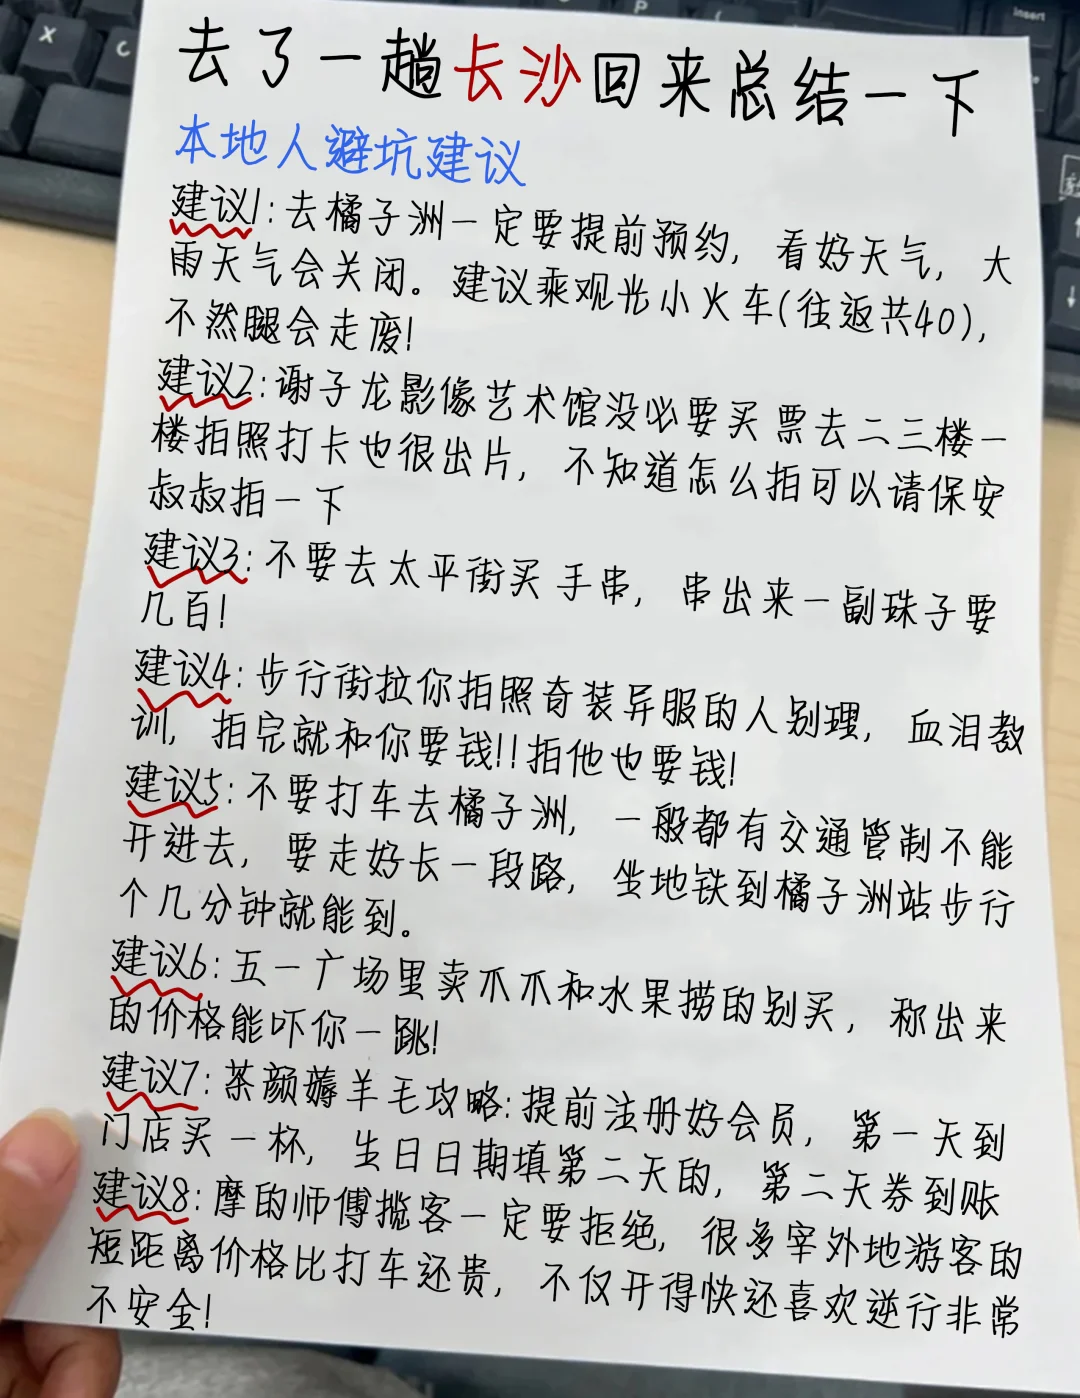 去了一趟长沙回来总结一下
本地人避坑建议
建议1:去橘子洲一定要提前预约,看好天气,大
雨天气会关闭。建议乘观光小火车(往返共40),
不然腿会走废!
建议2:谢子龙影像艺术馆没必要买票去二三楼一
楼拍照打卡也很出片,不知道怎么拍可以请保安
叔叔拍一下
建议3:不要去太平街买手串,串出来一副珠子要
几百!
建议4:步行街拉你拍照奇装异服的人别理,血泪教
训,拍完就和你要钱!!拍他也要钱!
建议5:不要打车去橘子洲,一般都有交通管制不能
开进去,要走好长一段路,坐地铁到橘子洲站步行
个几分钟就能到。
建议6:五一广场里卖不不和水果捞的别买,称出来
的价格能吓你一跳!
建议7:茶颜薅羊毛攻略:提前注册好会员,第一天到
门店买一杯,生日日期填第二天的,第二天券到账
建议8:摩的师傅揽客一定要拒绝,很多宰外地游客的
短距离价格比打车还贵,不仅开得快还喜欢逆行非常
不安全!
X
C
P
insert